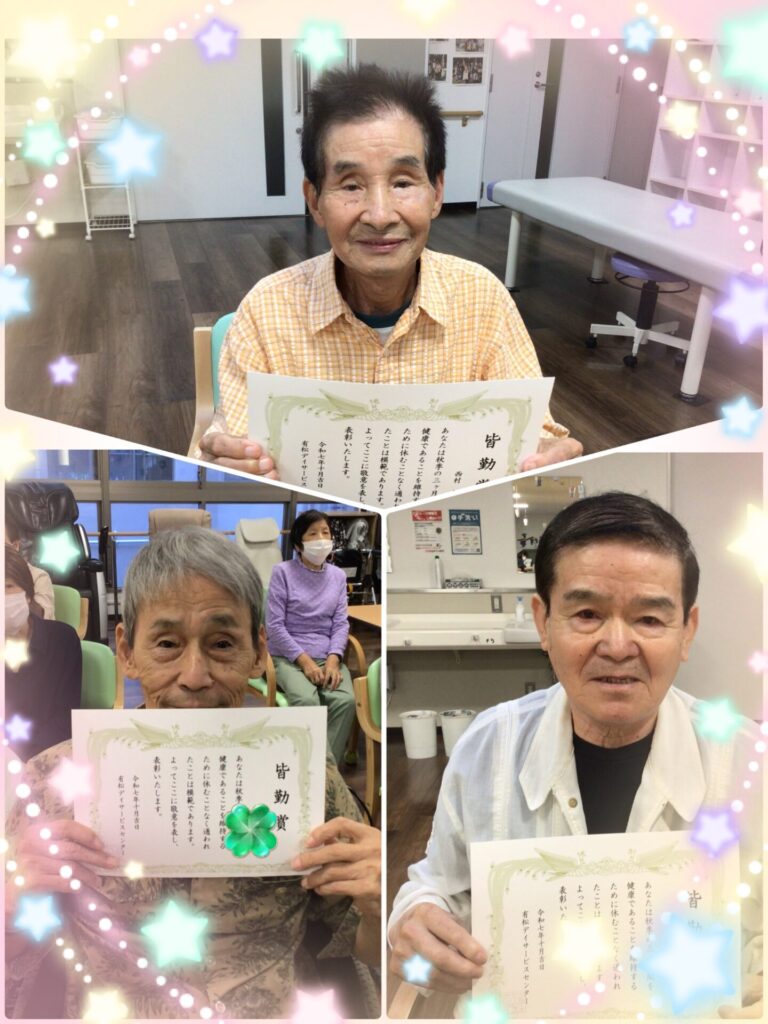 皆勤賞
西村
あなたは秋季の三ヶ月
健康であることを維持す
ために休むことなく通わ
たことは模範であります。
よってここに敬意を表し、
表彰いたします。
令和七年十月吉日
有松デイサービスセン
皆勤賞
あなたは秋季
健康であることを維持する
ために休むことなく通われ
たことは模範であります。
よってここに敬意を表し、
表彰いたします。
令和七年十月吉日
有松デイサービスセンター
手洗い
皆
あなたは秋季の
健康であることを維持する
ために休むことなく通われ
たことは
ます
よってここ
表彰いた
令和七年十月吉日
有松デイサービスセンター